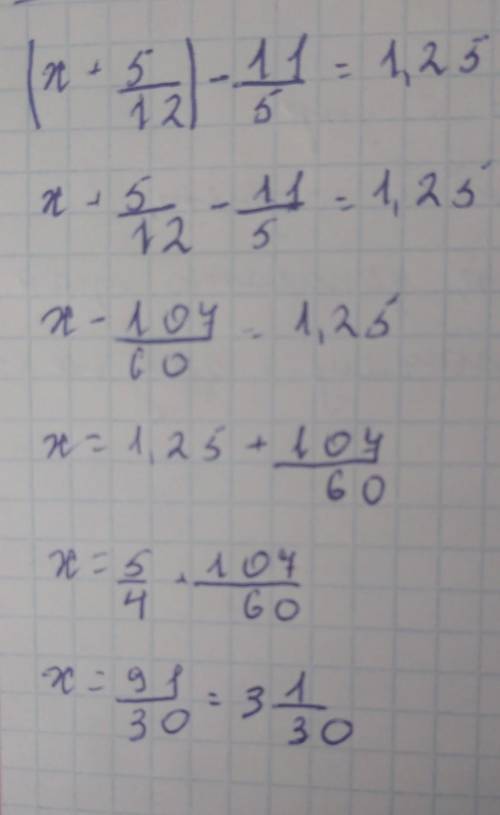 (x + 5/12) - 11/5 = 1,25
x + 5/12 - 11/5 = 1,25
x - 107/60 = 1,25
x = 1,25 + 107/60
x = 5/4 + 107/60
x = 91/30 = 3 1/30